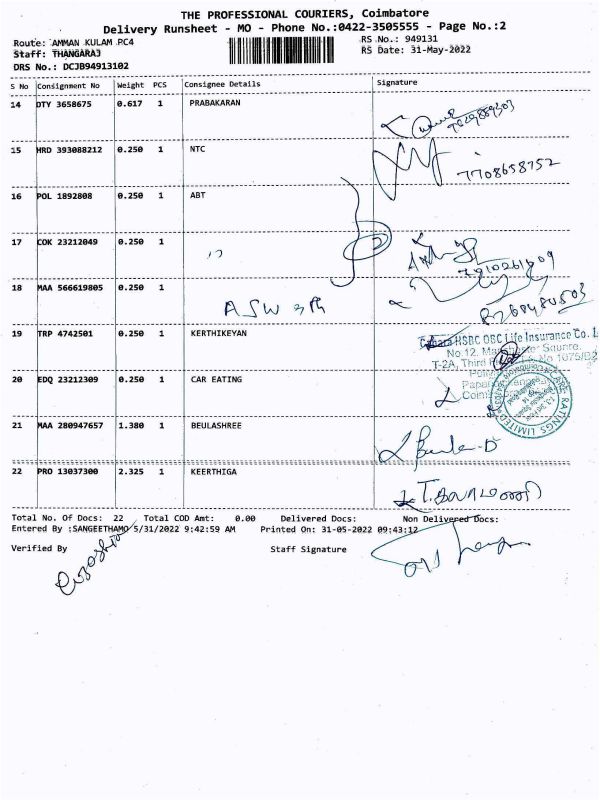 THE PROFESSIONAL COURIERS, Coimbatore
Delivery Runsheet - MO - Phone No.:0422-3505555 - Page No.:2
Route: AMMAN KULAM PC4 RS No.: 949131
Staff: THANGARAJ RS Date: 31-May-2022
DRS No.: DCJB94913102
S No Consignment No Weight PCS Consignee Details Signature
14 DTY 3658675 0.617 1 PRABAKARAN
15 HRD 393088212 0.250 1 NTC
7708658752
16 POL 1892808 0.250 1 ABT
17 COK 23212049 0.250 1 ''
18 MAA 566619805 0.250 1
19 TRP 4742501 0.250 1 KERTHIKEYAN
Canara HSBC OBC Life Insurance Co.
No.12,
T-2A, Third No 1075/B2
20 EDQ 23212309 0.250 1 CAR EATING
CARE RATINGS LIMITED
21 MAA 280947657 1.380 1 BEULASHREE
Beula-D
22 PRO 13037300 2.325 1 KEERTHIGA
Total No. Of Docs: 22 Total COD Amt: 0.00 Delivered Docs: Non Delivered Docs:
Entered By :SANGEETHAMO 5/31/2022 9:42:59 AM Printed On: 31-05-2022 09:43:12
Verified By Staff Signature